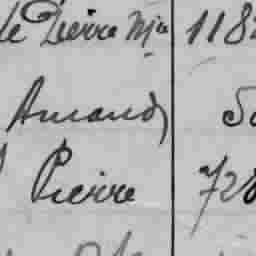 de Pierre Mie 118
Amand 5
Pierre 728